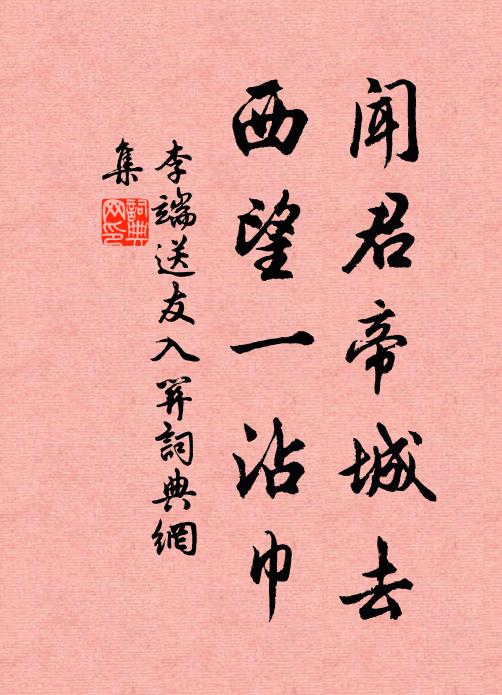 聞君帝城去
西望一沾巾
李端送友入關詞典網
集
詞典
网印